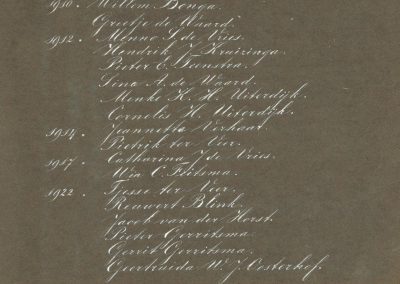 1910. Willem Bonga.
Grietje de Waard.
1912. Menno S. de Vries.
Hendrik J. Kruizinga.
Pieter E. Feenstra.
Sina A. de Waard.
Menko K. H. Uiterdijk.
Cornelis H. Uiterdijk.
1914. Jeannette Verhaat.
Pietrik ter Veer.
1917. Catharina J. de Vries.
C. Fritsma.
1922. Tjesse ter Veer.
Reauwert Blink.
Jacob van der Horst.
Pieter Gerritsma.
Gerrit Gerritsma.
Geertruida W. J. Oosterhof.